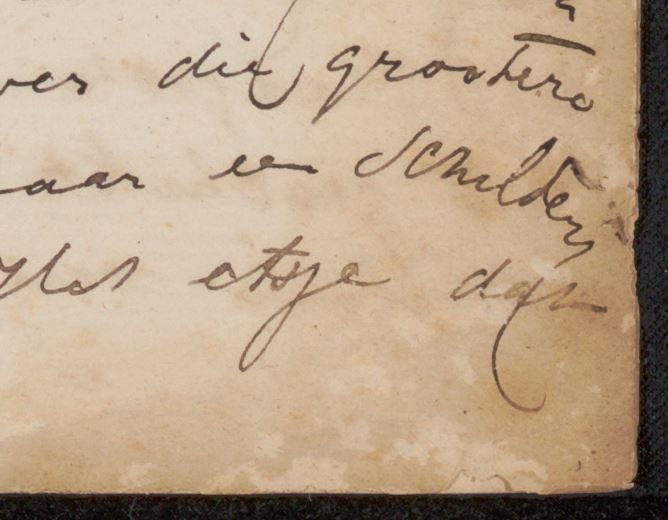 ver die grootere
aar een Schildery
Het etsje dat